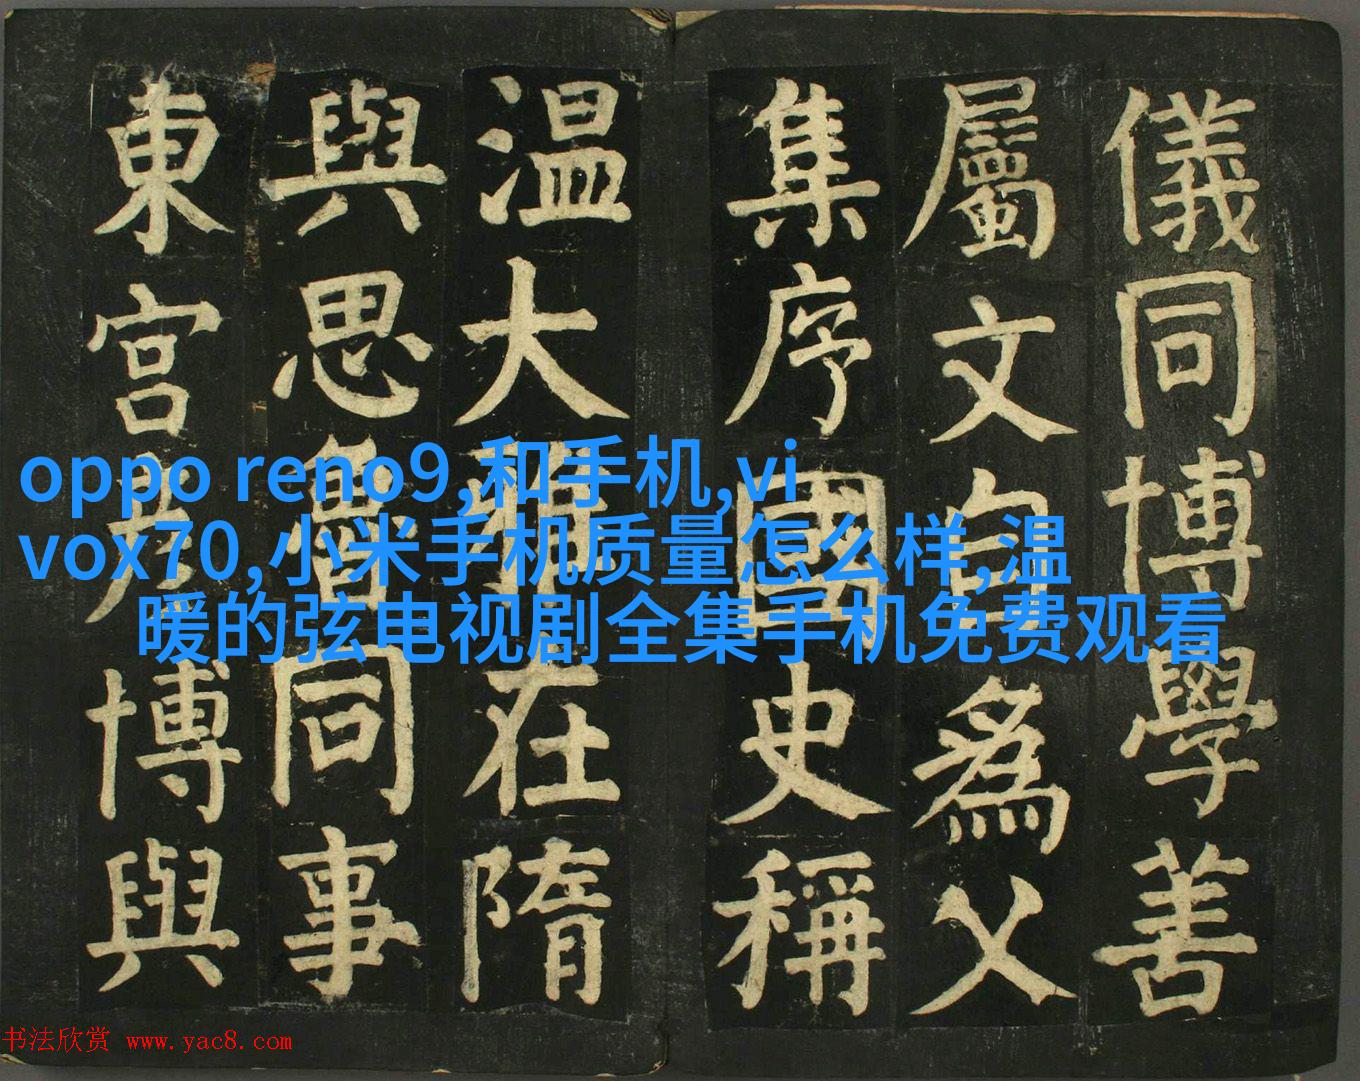 儀同博學善
屬文自為父
集序國史稱
温大雅在隋
與思魯同事
東宮彦博與
oppo reno9,和手机,vi
vox70,小米手机质量怎么样,温
暖的弦电视剧全集手机免费观看
书法欣赏 www.yac8.com